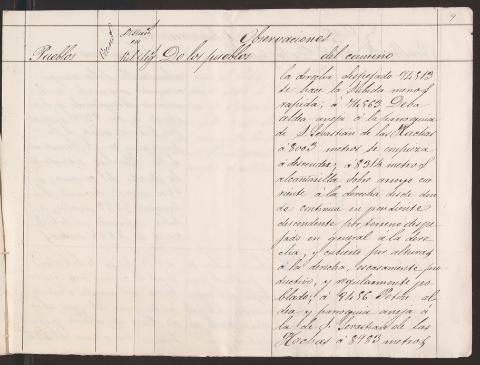 9
Observaciones
Distancia
en
Pueblos
De los pueblos
del camino
la derecha despejado á 7513
se hace la subida menos
rapida; á 7663 Deba
aldea aneja á la parroquia
de S. Sebastian de las Hachas
á 8003 metros se empieza
á descender; á 8314 metros
alcantarilla sobre arroyo cor
riente á la derecha desde don
de continua en pendiente
descendente por terreno despe
jado en general á la dere
cha, y cubierto por alturas
á la derecha, escasamente pro
ductivo, y regularmente po
blado; á 8486 Petán al
dea y parroquia aneja á
la de S. Sevastian de las
Hachas á 8983 metros